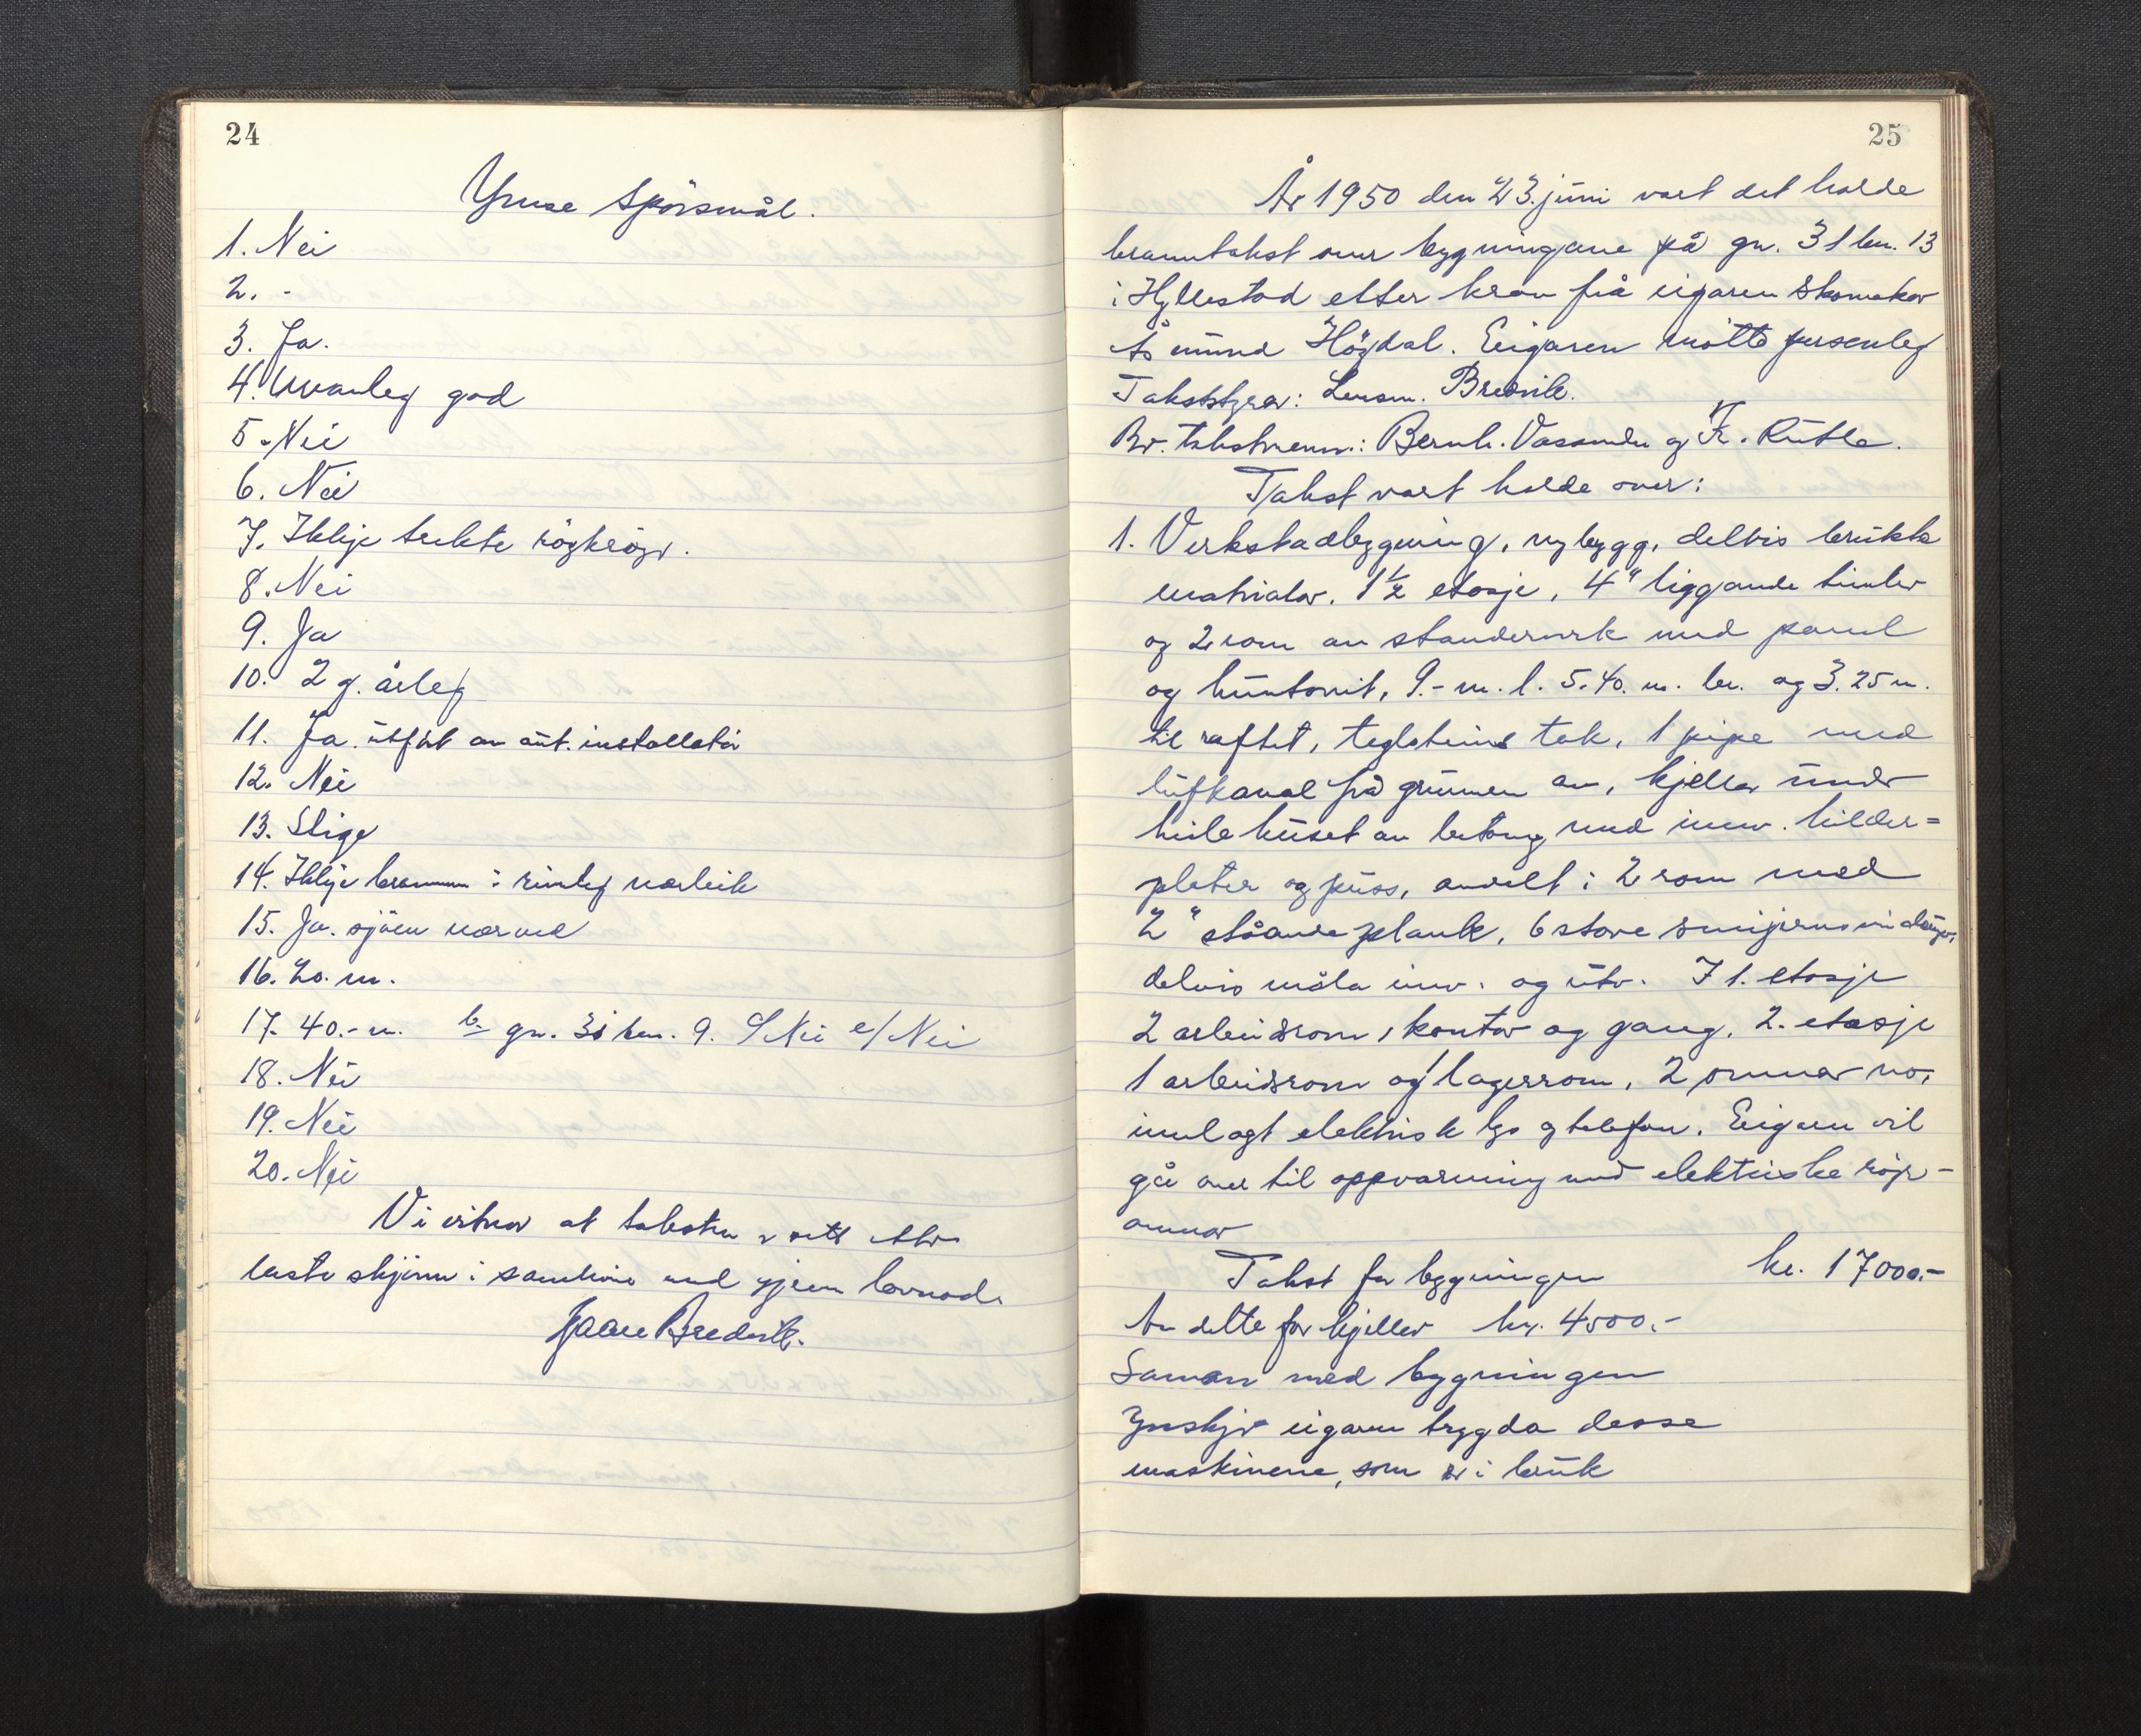 24
Ymse spörsmål.
1. Nei
2. -
3. Ja.
4. Uvanleg god
5. Nei
6. Nei
7. Ikkje tekte
8. Nei
9. Ja
10. 2 g. årleg
11. Ja. utfört av aut. installatör
12. Nei
13. Stige
14. Ikkje i rimeleg nærleik
15. Ja. sjöen nærved
16. 20. m.
17. 40.- m. b. gn. 31 bn. 9. c/ Nei e/ Nei
18. Nei
19. Nei
20. Nei
Vi vitnar at taksten er sett etter
beste skjönn i samhöve med gjeven lovnad.
Bredvik.
25
År 1950 den 23. juni vart det halde
branntakst over bygningane på gn. 31 bn. 13
i Hyllestad etter krav frå eigaren Skomakar
Åsmund Högdal. Eigaren mötte personleg
Takststyrar: Lensm. Bredvik.
Br. takstmenn: Bernh. Vasanden og Fr. Rutle.
Takst vart halde over:
1. Verkstadbygning, nybygg, delvis brukte
matrialar. 1½ etasje, 4" liggande timber
og 2 rom av standerverk med panel
og huntonit, 9.- m. l. 5.40. m. br. og 3.25 m.
til raftet, teglsteins tak, 1 pipe med
luftkanal frå grunnen av, kjellar under
heile huset av betong med innv. hilder=
plater og puss, avdelt i 2 rom med
2" ståande plank, 6 store
delvis måla innv. og utv. I 1. etasje
2 arbeidsrom, kontor og gang, 2. etasje
1 arbeidsrom og 1 lagerrom, 2 omnar no,
innlagt elektrisk lys og telefon. Eigaren vil
gå over til oppvarming med elektriske rör-
omnar
Takst for bygningen kr. 17000.-
Av dette for kjellar kr. 4500.-
Saman med bygningen
ynskjer eigaren trygda desse
maskinene, som er i bruk